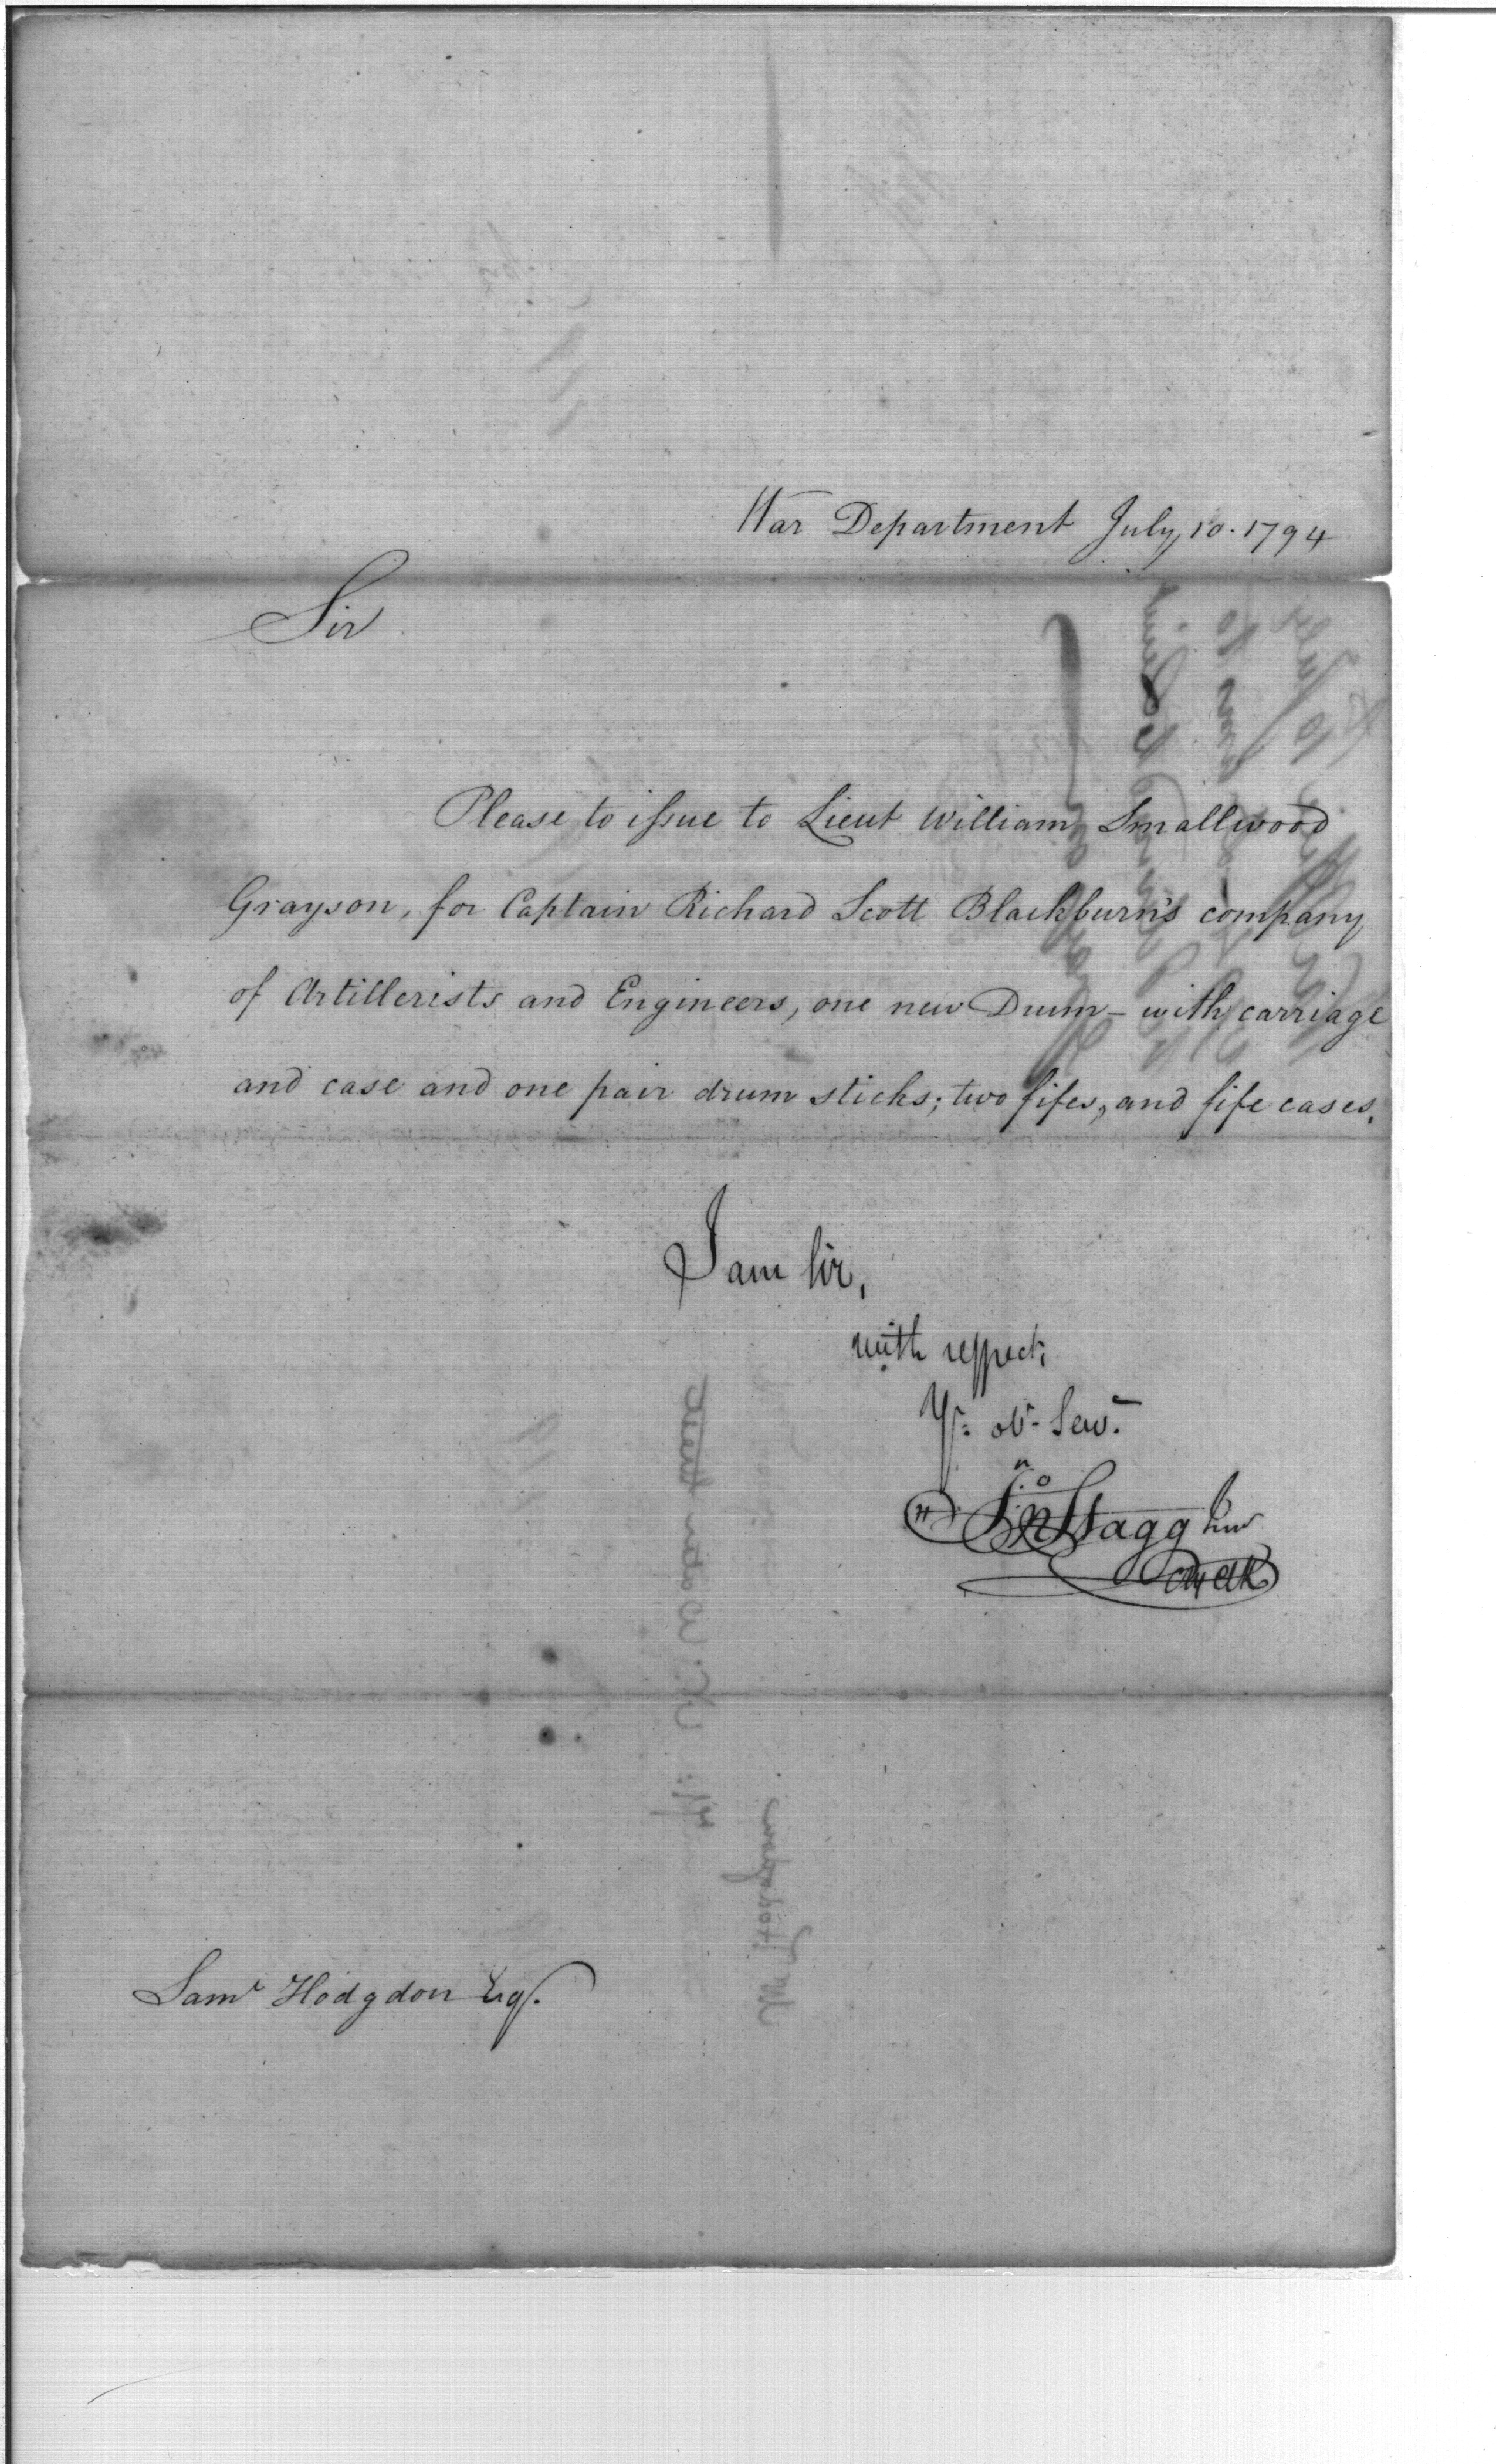 War Department July, 10. 1794
Sir
Please to issue to Lieut William Smallwood
Grayson, for Captain Richard Scott Blackburn's company
of Artillerists and Engineers, one new Drum - with carriage
and case and one pair drum sticks; two fifes, and fife cases.
I am Sir,
with respect,
Yr. obt. Serv.
Jno Stagg Junr
Ch Clk
Saml Hodgdon Esqr.